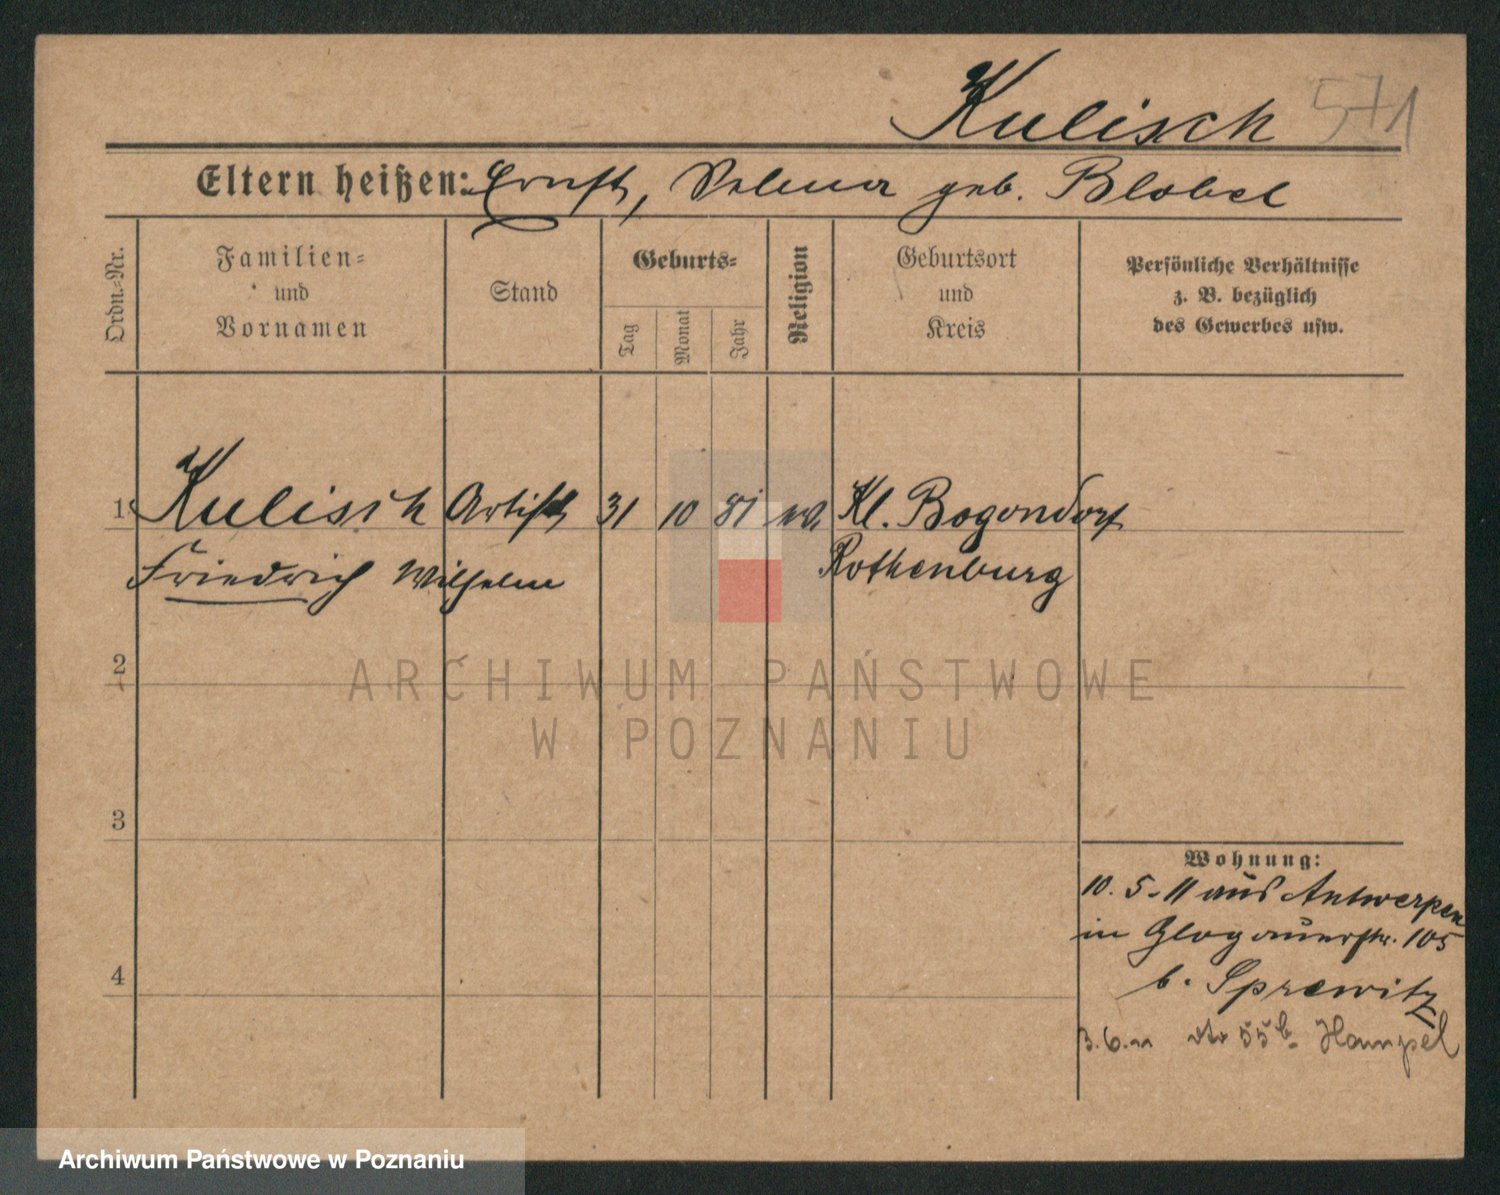 Kulisch 571
Eltern heißen: Ernst, Selma geb. Blobel
Ordn.-Nr.
Familien-
und
Vornamen
Stand
Geburts-
Tag
Monat
Jahr
Religion
Geburtsort
und
Kreis
Persönliche Verhältnisse
z. B. bezüglich
des Gewerbes usw.
1 Kulisch Artist 31 10 81 ev. Kl. Bogendorf
Friedrich Wilhelm Rothenburg
2
ARCHIWUM PAŃSTWOWE
W POZNANIU
3
Wohnung:
10. 5. 11 aus Antwerpen
in Glogauerstr. 105
b. Sprewitz
4
3. 6. 11 dto 55 b. Hampel
Archiwum Państwowe w Poznaniu